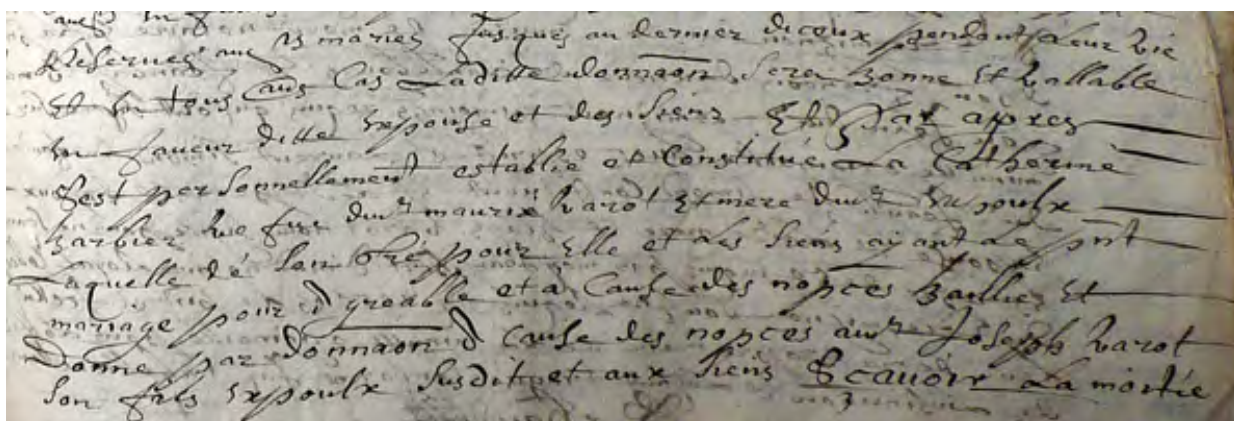 Reserves aus ds mariez Jusques au dernier diceux pendant leur vie
Et en tous Cauz Cas Laditte donnaon sera bonne Et vallable
en faveur ditte Expouse et des siens Et par appres
Sest personnellement establie et Constituée La Catherine
barbier vefve dud maurix varot Et mere dud Expoulx
Laquelle de son gré pour Elle et Les siens ayant Le pnt
mariage pour Agreable et a Cause des nopces baille Et
Donne par donnaon A cause des nopces aud Joseph varot
son fils Expoulx susdit et aux siens Scavoir La moitie